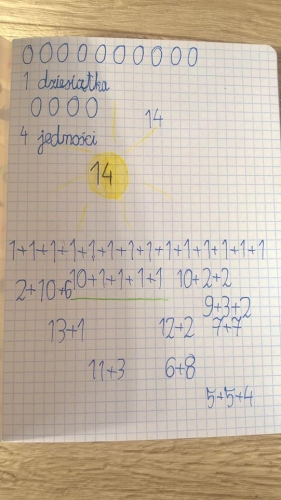 0 0 0 0 0 0 0 0 0 0
1 dziesiątka
0 0 0 0
14
4 jedności
14
1+1+1+1+1+1+1+1+1+1+1+1+1+1
2+10+6 10+1+1+1+1 10+2+2
9+3+2
13+1 12+2 7+7
11+3 6+8
5+5+4